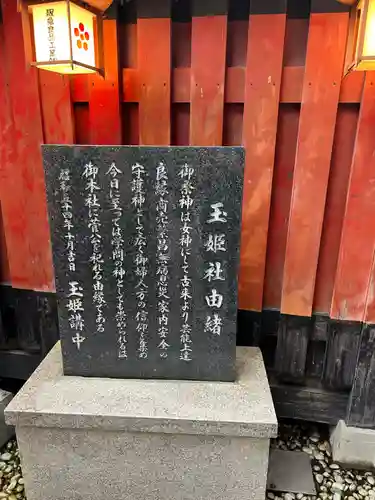 玉姫社由緒
御祭神は女神にして古来より芸能上達
良縁、商売繁昌無病息災家内安全
守護神として広く御婦人方の信仰を集め
今日に至っては学問の神としても崇められるは
御本社に菅公を祀れる由縁である
昭和五十四年十月吉日 玉姫講中